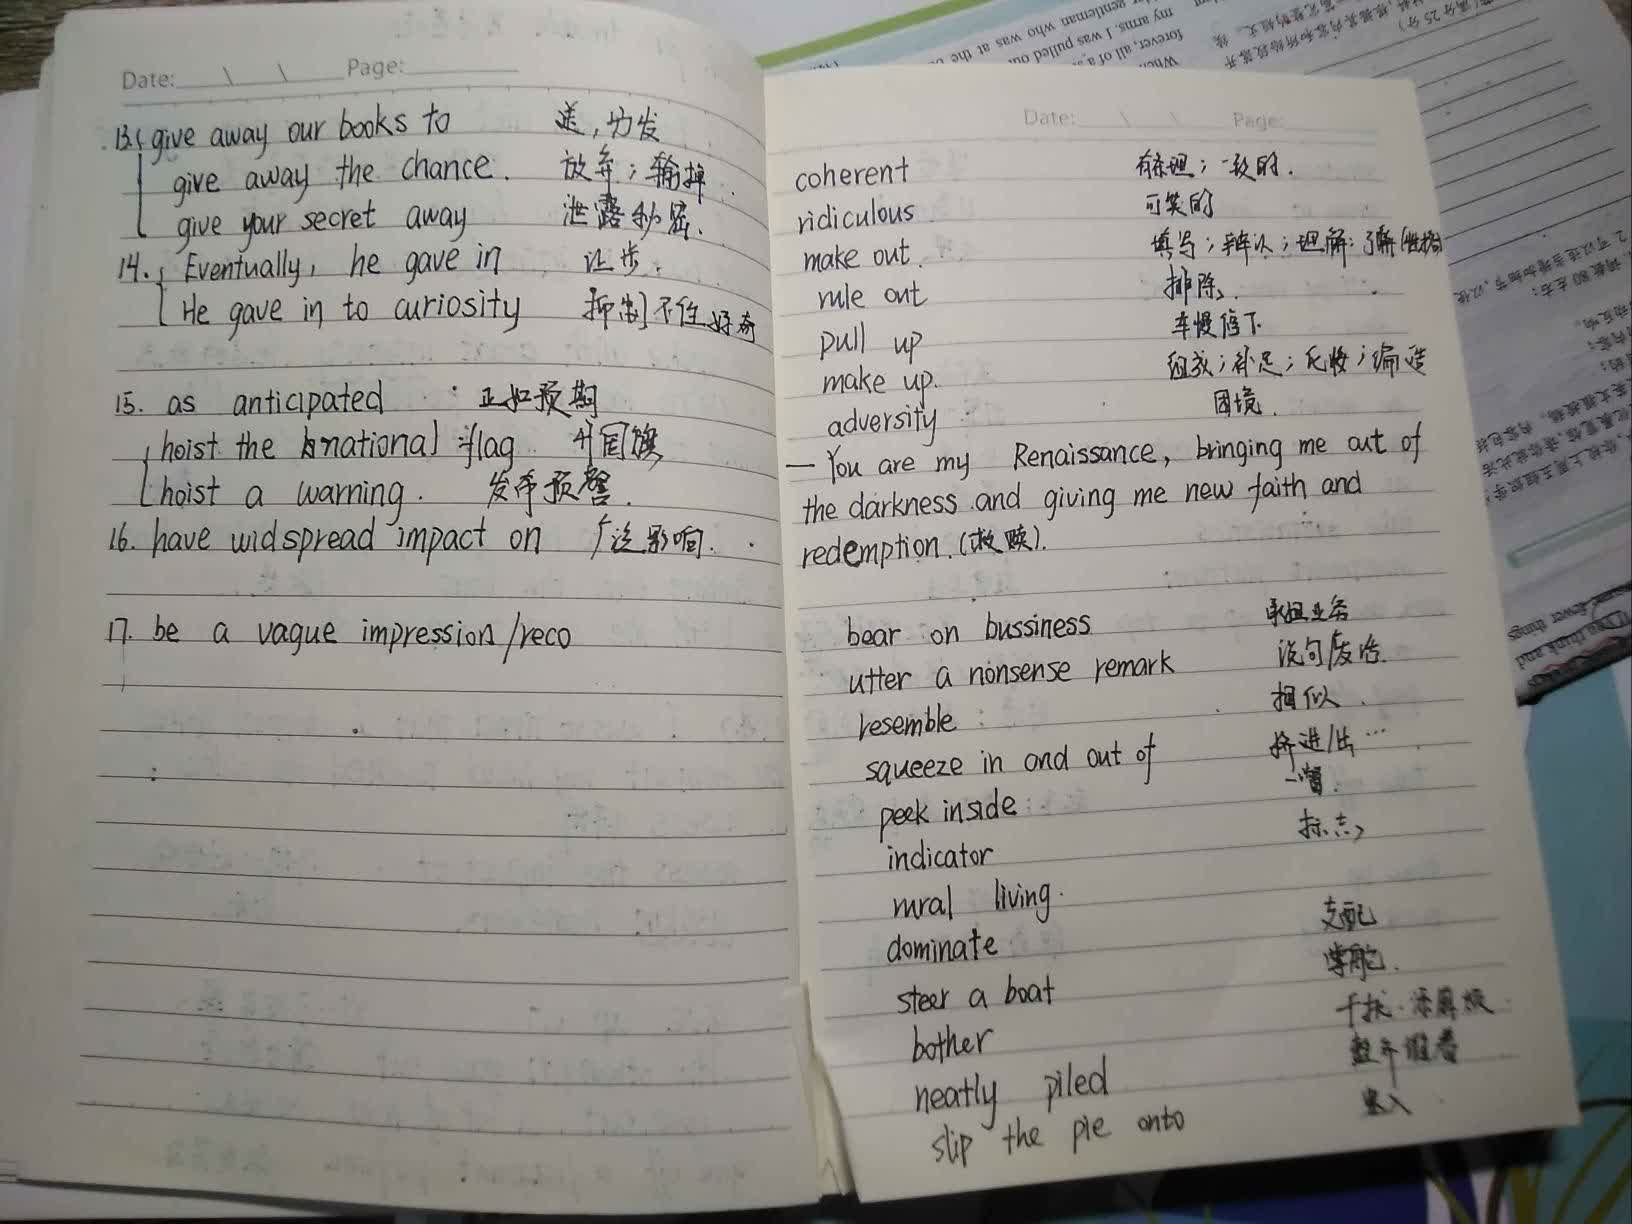 Date: \ \ Page:
13. give away our books to 送,分发
give away the chance. 放弃;输掉.
give your secret away 泄露秘密.
14. Eventually, he gave in 让步.
He gave in to curiosity 抑制不住好奇
15. as anticipated 正如预期
hoist the national flag 升国旗
hoist a warning. 发布预警.
16. have widspread impact on 广泛影响.
17. be a vague impression/reco
Date: \ \ Page:
coherent 有条理;一致的.
ridiculous 可笑的
make out. 填写;辨认;理解;了解(性格)
rule out 排除.
pull up 车慢停下
make up. 组成;补足;化妆;编造
adversity 困境.
— You are my Renaissance, bringing me out of
the darkness and giving me new faith and
redemption.(救赎).
bear on bussiness 承担业务
utter a nonsense remark 说句废话.
resemble: 相似.
squeeze in and out of 挤进/出…
peek inside 一瞥.
indicator 标志
rural living.
dominate 支配
steer a boat 掌舵.
bother 干扰·添麻烦
neatly piled 整齐堆着
slip the pie onto 塞入